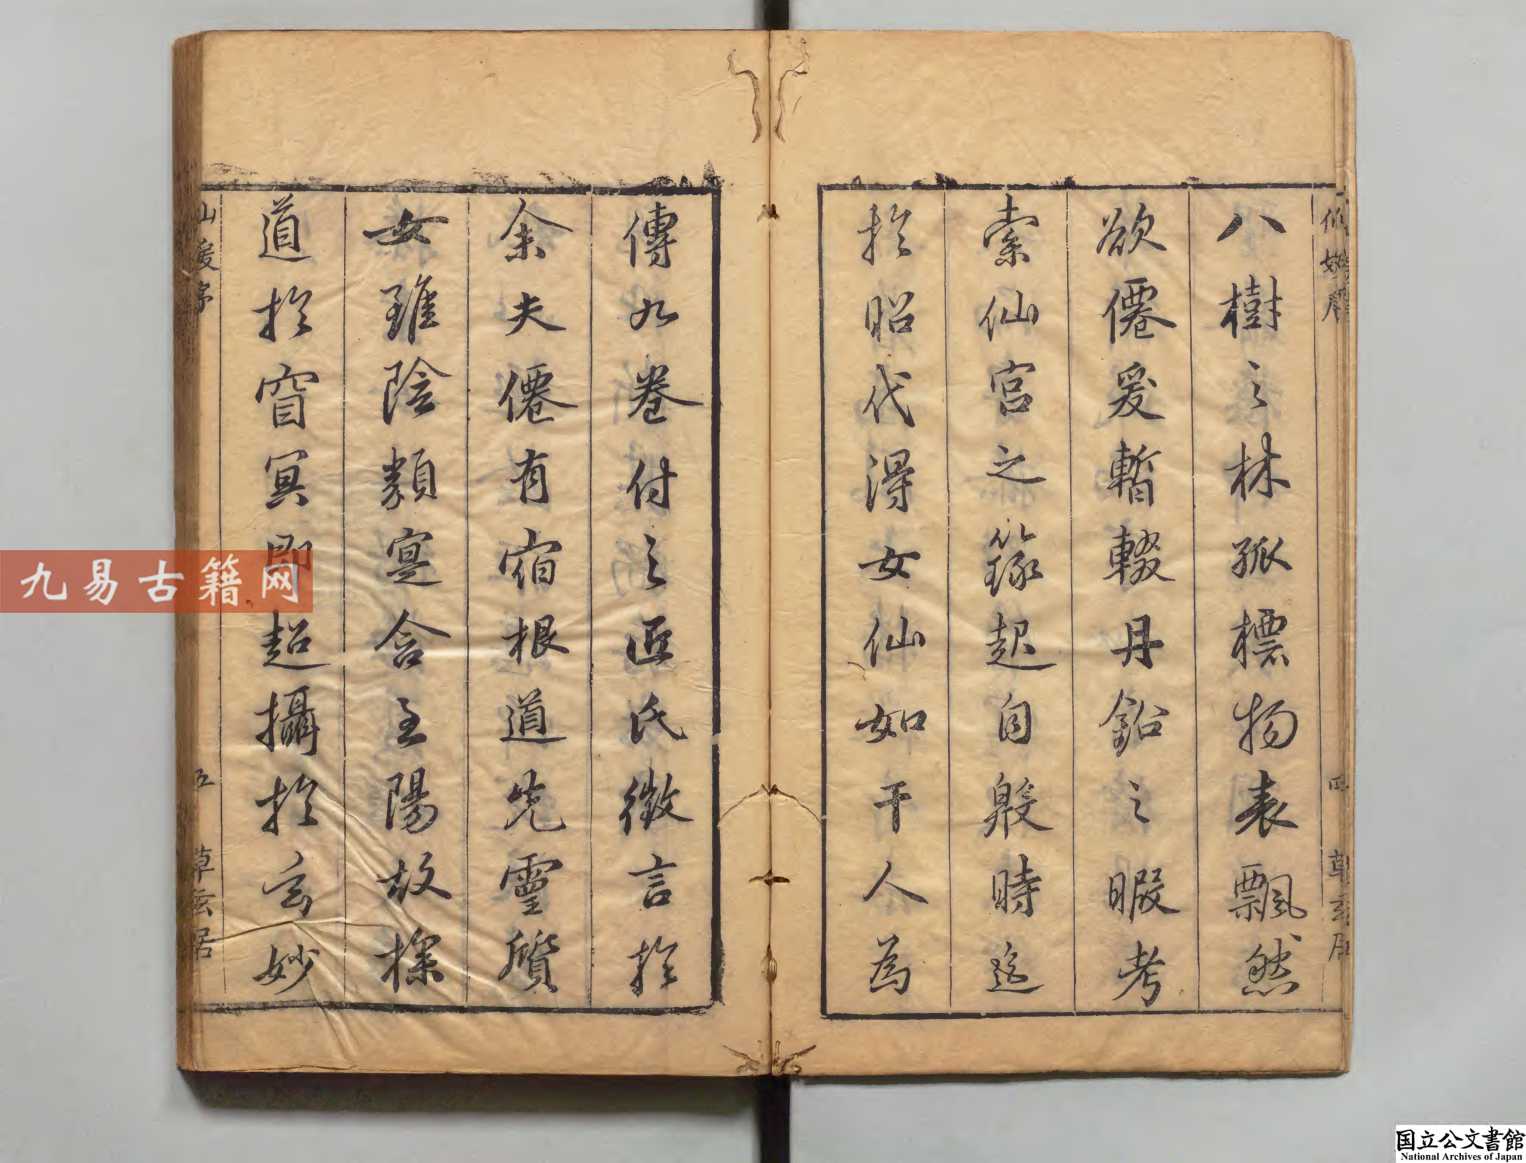 八樹之林孤標物表飄然
欲僊爰暫輟丹鉛之暇考
索仙宮之籙起自殷時迄
於昭代得女仙如干人為
傳九卷付之匠氏徵言於
余夫僊有宿根道先靈質
女雖陰類寔含至陽故探
道於窅冥即超攝於玄妙
仙媛序
五
草玄居
四
草玄居
九易古籍网
国立公文書館
National Archives of Japan